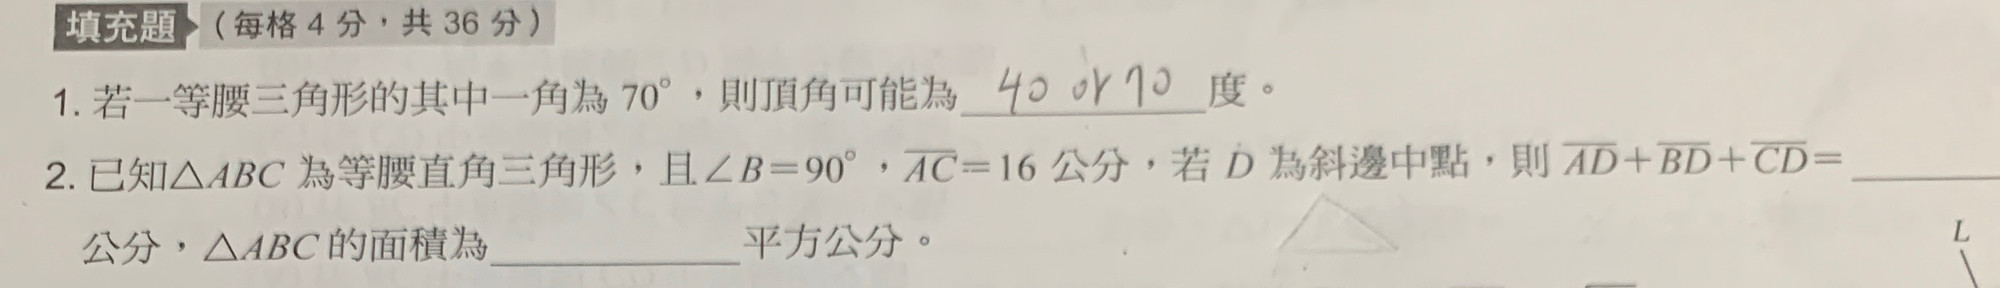 填充題（每格 4 分，共 36 分）
1. 若一等腰三角形的其中一角為 70°，則頂角可能為 40 or 70 度。
2. 已知△ABC 為等腰直角三角形，且∠B＝90°，AC＝16 公分，若 D 為斜邊中點，則 AD＋BD＋CD＝
公分，△ABC 的面積為＿＿＿＿＿＿平方公分。
L